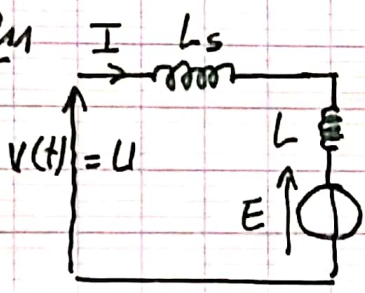 I Ls
L
V(t) = U
E